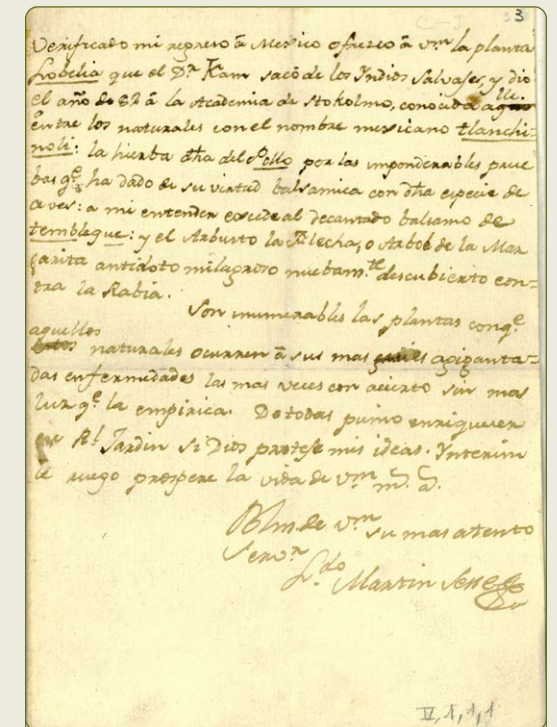 3
Verificado mi regreso â Mexico ofresco â vm la planta
Lobelia que el Dr Kam sacó de los Yndios Salvajes, y dio
el año de 82 â la Academia de Stokolmo, conocida alli
entre los naturales con el nombre mexicano tlanchi-
noli: la hierba dha del Pollo por las imponderables prue
bas qe ha dado de su virtud balsamica con dha especie de
aves: a mi entender excede al decantado balsamo de
tembleque: y el Arbusto la Flecha, o Arbol de la Mar
garita antidoto milagroso nuebamte descubierto con-
tra la Rabia.
Son inumerables las plantas conqe
aquellos
naturales ocurren â sus mas agiganta-
das enfermedades las mas veces con acierto sin mas
luz qe la empirica. De todas pienso enriquecer
Rl Jardin si Dios proteje mis ideas. Ynterim
le ruego prospere la vida de vm m. a.
Blm. de vm su mas atento
Servr
Ldo Martin Sesse
IV,1,1,1